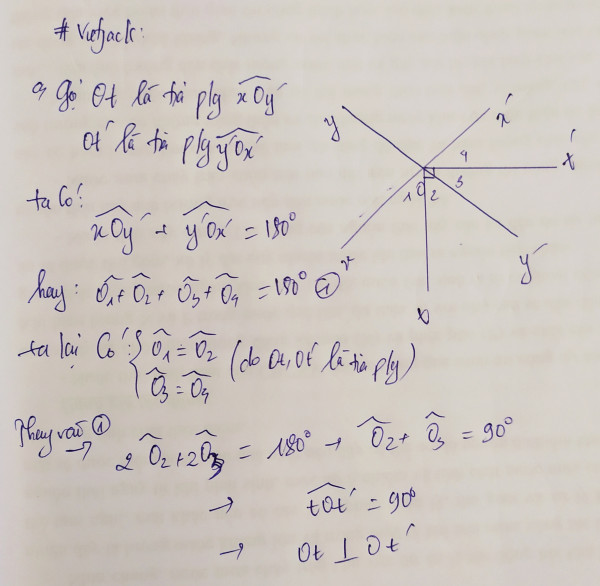 # Vietjack:
a, Gọi Ot là tia p/g xOy′
Ot′ là tia p/g y′Ox′
ta có:
xOy′ + y′Ox′ = 180°
hay: Ô1 + Ô2 + Ô3 + Ô4 = 180° ①
ta lại có: { Ô1 = Ô2
Ô3 = Ô4 (do Ot, Ot′ là tia p/g)
Thay vào ①
→ 2Ô2 + 2Ô3 = 180° → Ô2 + Ô3 = 90°
→ tOt′ = 90°
→ Ot ⊥ Ot′
y
x′
4
t′
O
3
1
2
x
y′
t